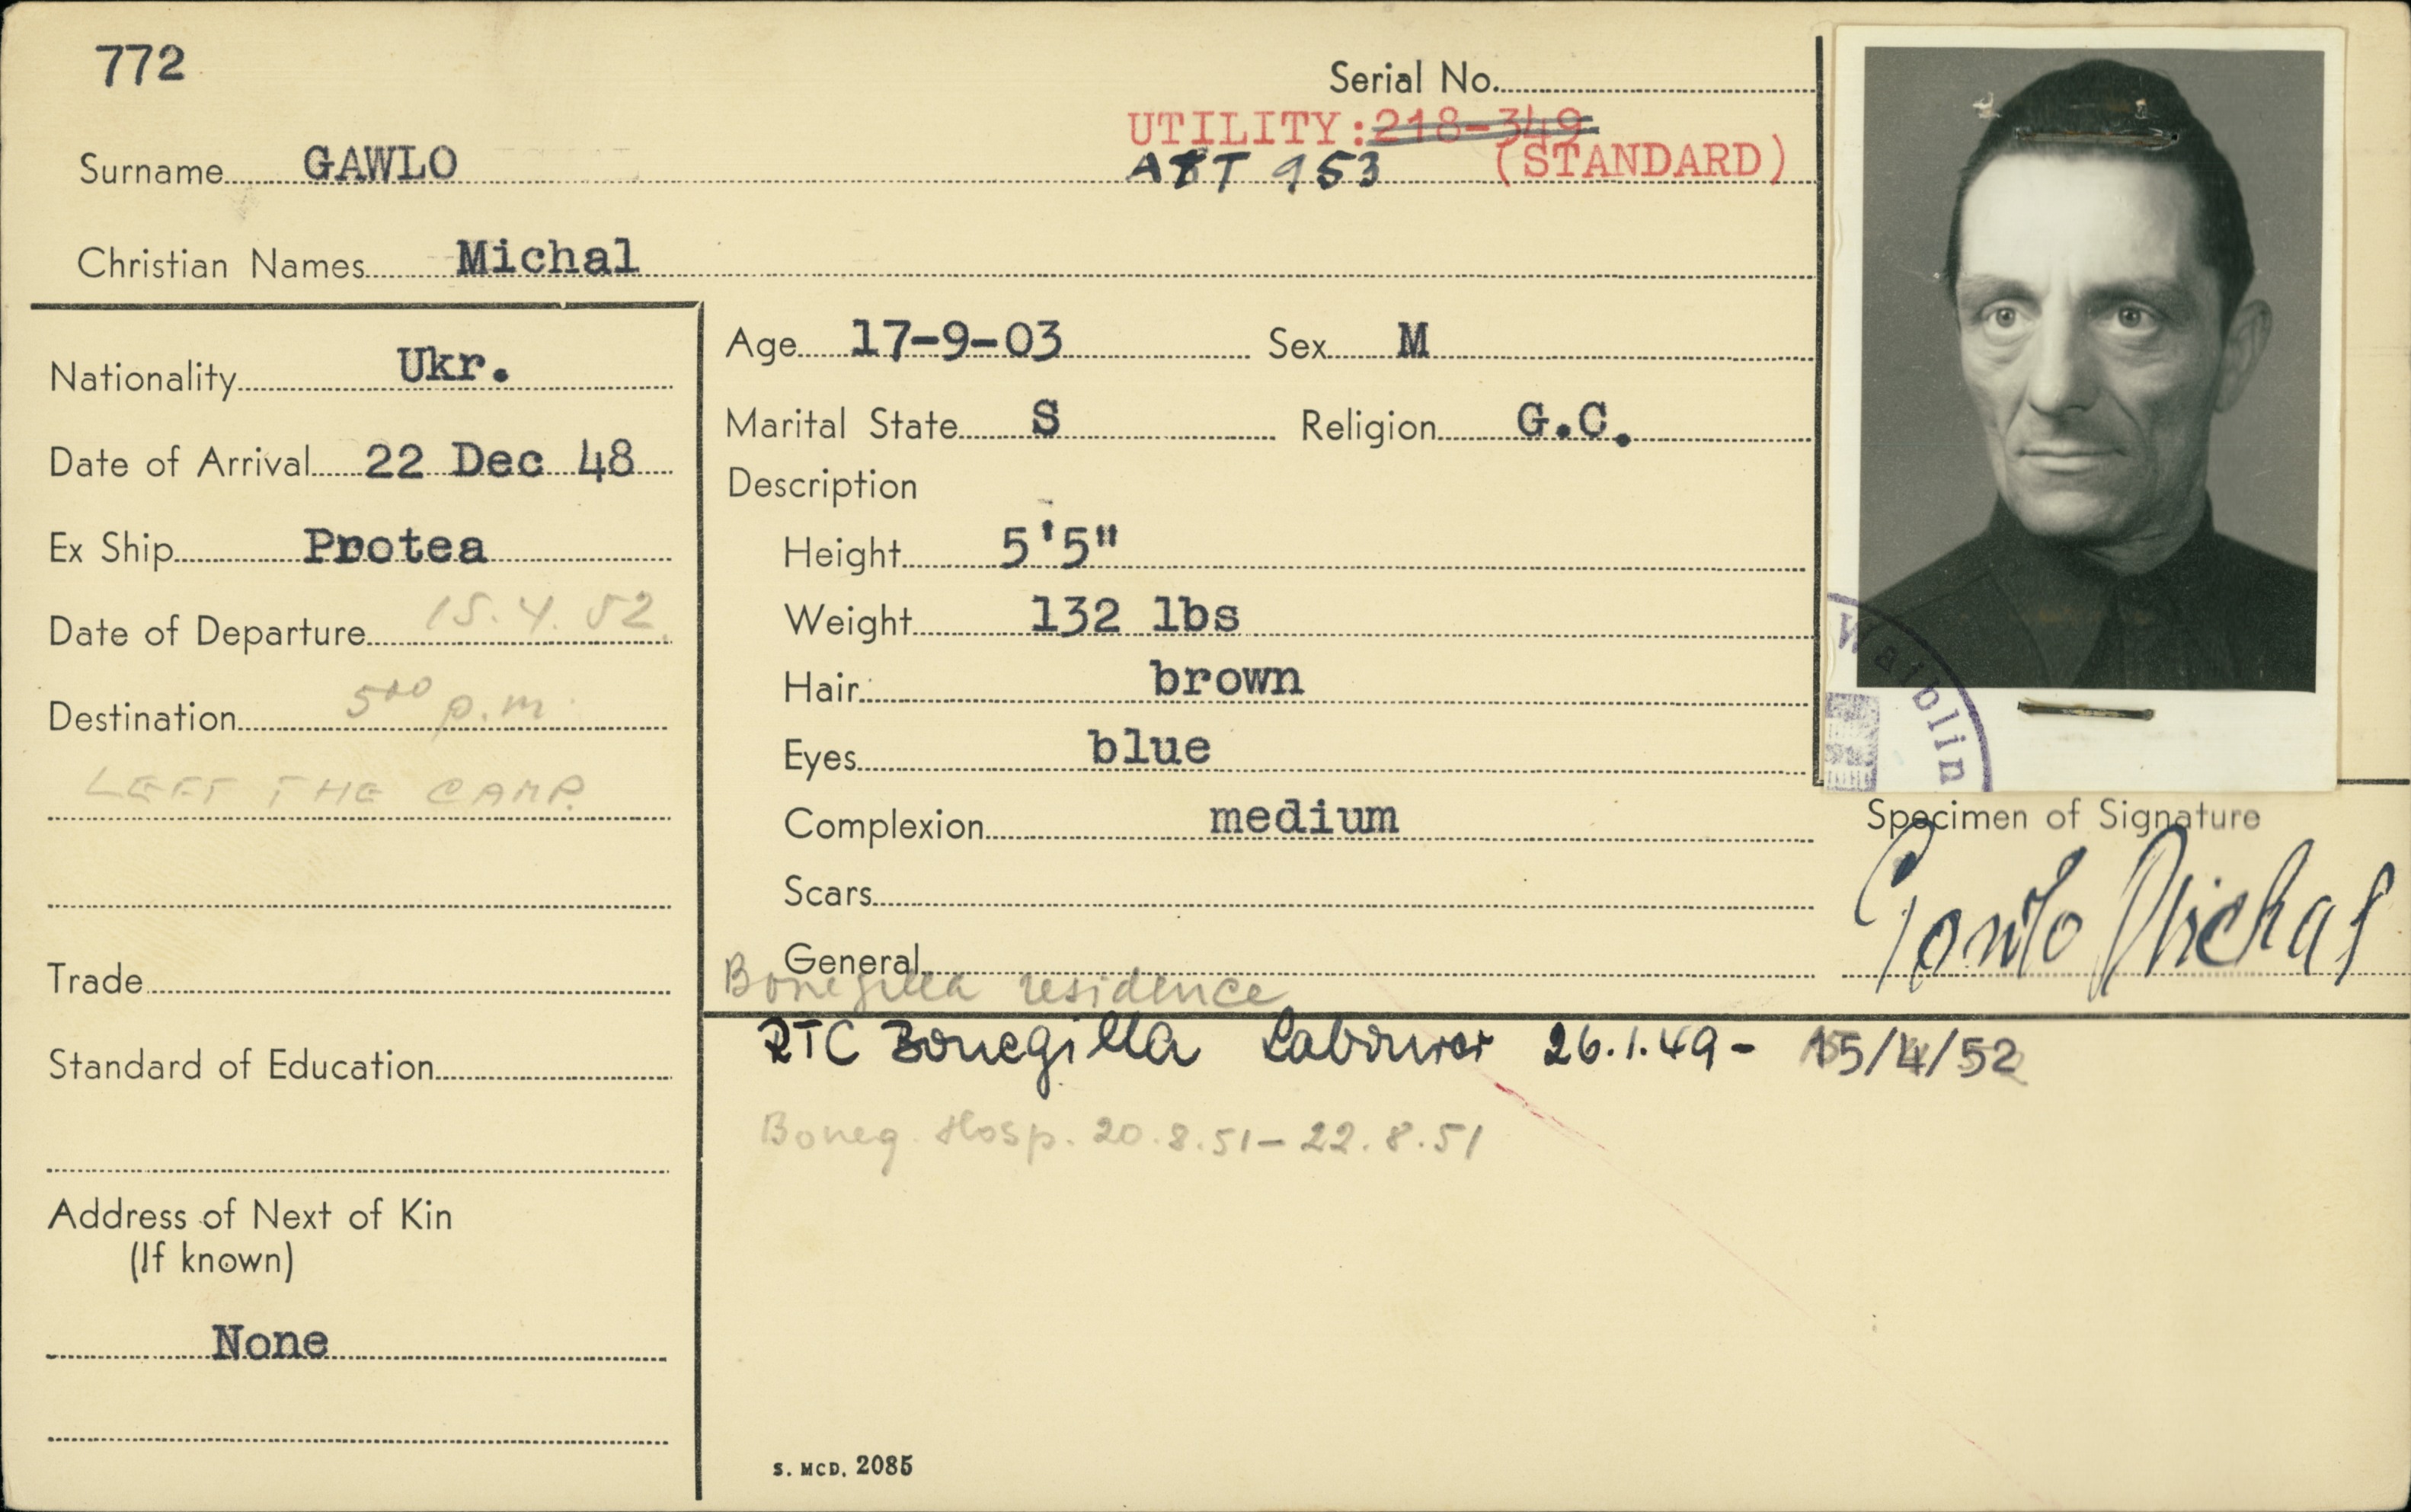 772
Serial No.
UTILITY: 218-349
Surname GAWLO
ATT 953 (STANDARD)
Christian Names Michal
Nationality Ukr.
Date of Arrival 22 Dec 48
Ex Ship Protea
Date of Departure 15.4.52
Destination 5⁰⁰ p.m.
LEFT THE CAMP.
Trade
Standard of Education
Address of Next of Kin
(If known)
None
Age 17-9-03 Sex M
Marital State S Religion G.C.
Description
Height 5'5"
Weight 132 lbs
Hair brown
Eyes blue
Complexion medium
Scars
General
Bonegilla residence
RTC Bonegilla Labourer 26.1.49 - 15/4/52
Boneg. Hosp. 20.8.51 - 22.8.51
S. MCD. 2085
Waiblin
Specimen of Signature
Gawlo Michal